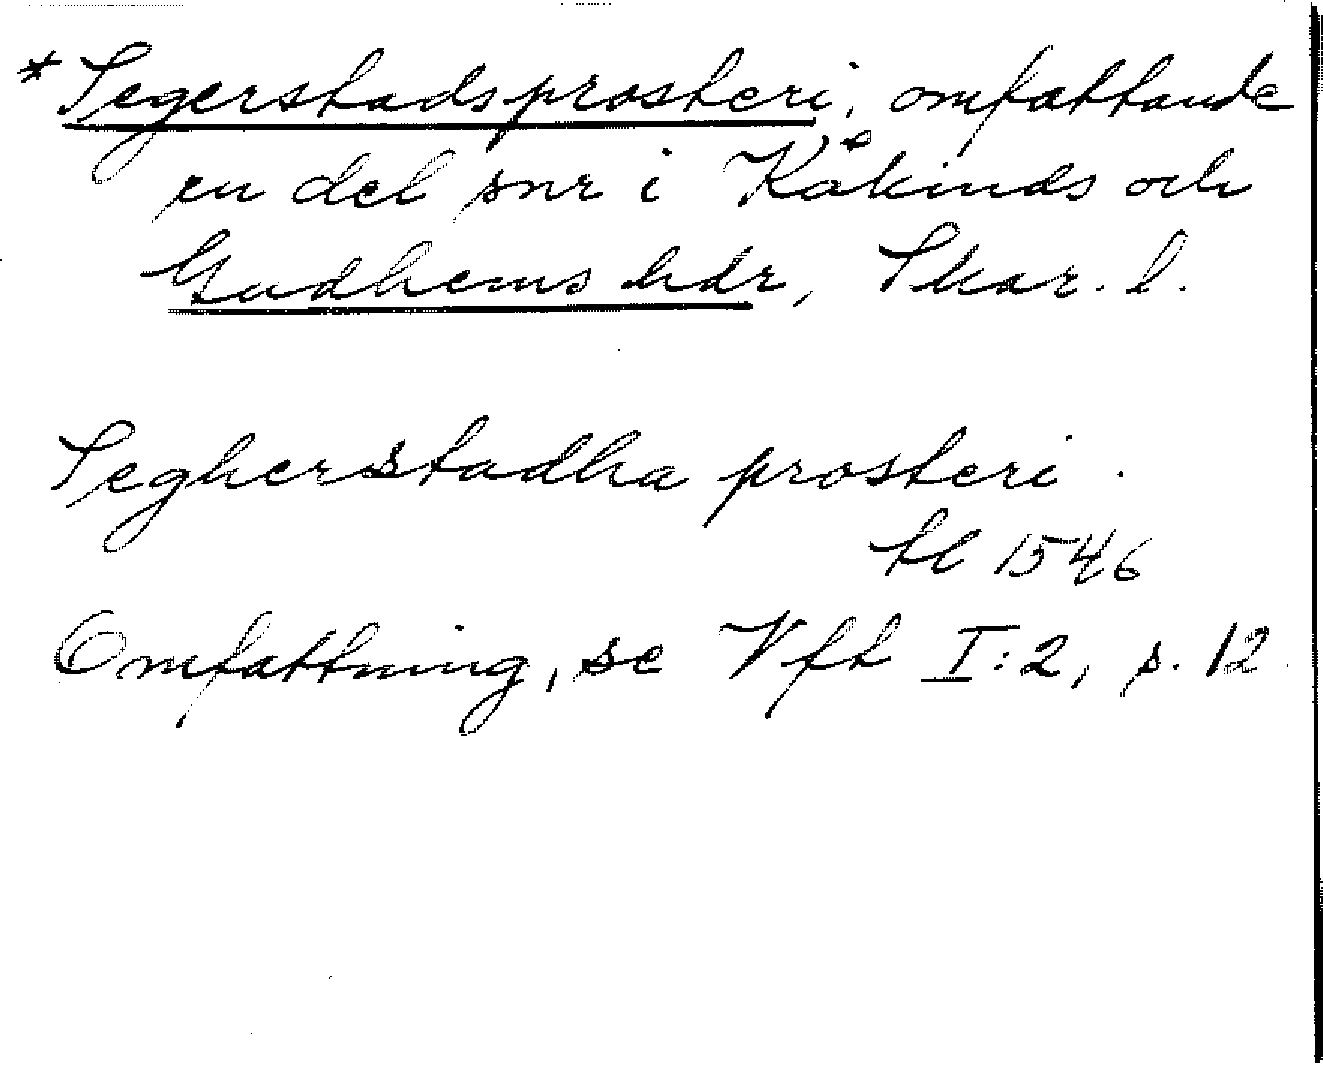 *Segerstads prosteri, omfattande
en del snr i Kåkinds och
Gudhems hdr, Skar. l.
Segherstadha prosteri.
tl 1546
Omfattning, se Vft I:2, s. 12